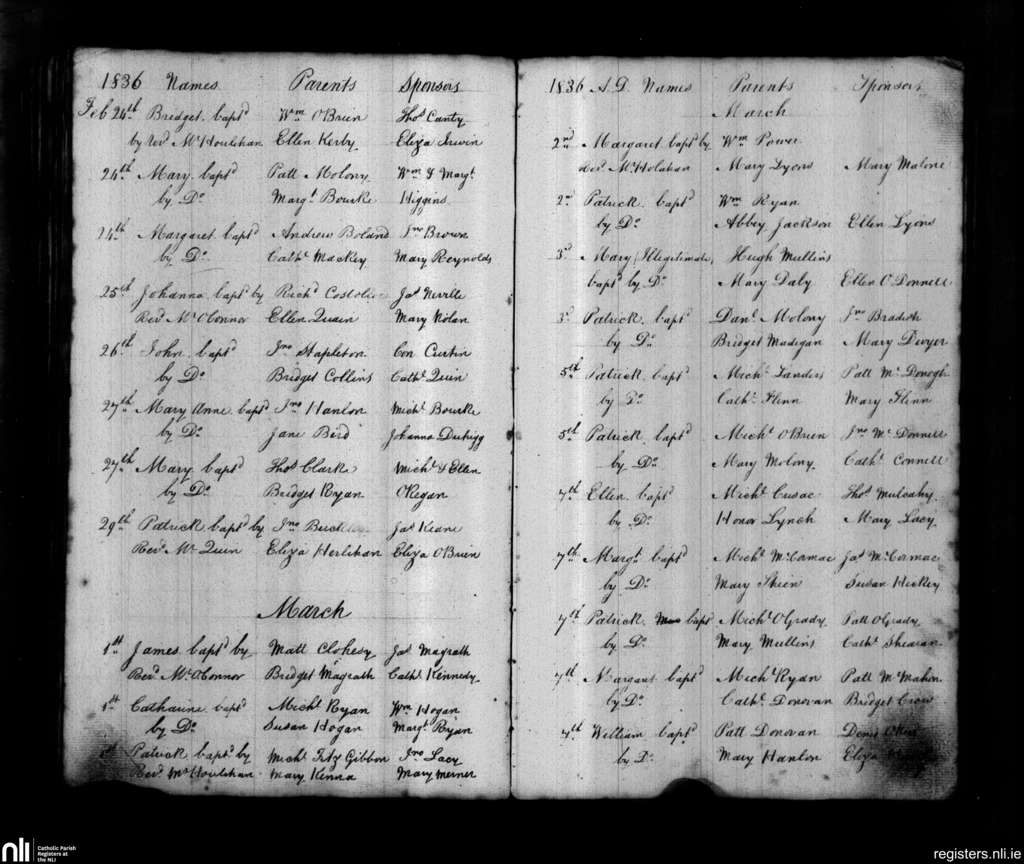 1836 Names Parents Sponsors
Feb 24th Bridget bapt'd Wm O'Brien Thos Canty
by Revd Mr Houlihan Ellen Kerby Eliza Irwin
24th Mary bapt'd Patt Molony Wm & Margt
by Do Margt Bourke Higgins
24th Margaret bapt'd Andrew Boland Jno Brown
by Do Cathe Mackey Mary Reynolds
25th Johanna bapt'd by Richd Costoloe Jas Neville
Revd Mr O'Connor Ellen Quain Mary Nolan
26th John bapt'd Jno Stapleton Con Curtin
by Do Bridget Collins Cathe Quin
27th Mary Anne bapt'd Jno Hanlon Michl Bourke
by Do Jane Bird Johanna
27th Mary bapt'd Thos Clarke Michl & Ellen
by Do Bridget Ryan OKegan
29th Patrick bapt'd by Jno Jas Keane
Revd Mr Quin Eliza Herlihan Eliza O'Brien
March
1st James bapt'd by Matt Clohesy Jas Magrath
Revd Mr O'Connor Bridget Magrath Cathe Kennedy
1st Catharine bapt'd Michl Ryan Wm Hogan
by Do Susan Hogan Margt Ryan
Patrick bapt'd by Michl FitzGibbon Jno Lacy
Revd Mr Houlihan Mary Kenna Mary
1836 A.D. Names Parents Sponsors
March
2nd Margaret bapt'd by Wm Power
Revd Mr Holahan Mary Lyons Mary Malone
2nd Patrick bapt'd Wm Ryan
by Do Abbey Jackson Ellen Lyons
3rd Mary (Illegitimate) Hugh Mullins
bapt'd by Do Mary Daly Ellen O'Donnell
3rd Patrick bapt'd Danl Molony Jno Bradish
by Do Bridget Madigan Mary Dwyer
5th Patrick bapt'd Michl Landers Patt McDonogh
by Do Cathe Flinn Mary Flinn
5th Patrick bapt'd Michl O'Brien Jno McDonnell
by Do Mary Molony Cathe Connell
7th Ellen bapt'd Michl Cusac Thos Mulcahy
by Do Honor Lynch Mary Lacy
7th Margt bapt'd Michl McCormac Jas McCormac
by Do Mary Sheen Susan Hickey
7th Patrick bapt'd Michl O'Grady Patt OGrady
by Do Mary Mullins Cathe Shearan
7th Margaret bapt'd Michl Ryan Patt McMahon
by Do Cathe Donovan Bridget Crow
7th William bapt'd Patt Donovan Denis
by Do Mary Hanlon Eliza
nli
Catholic Parish
Registers at
the NLI
registers.nli.ie